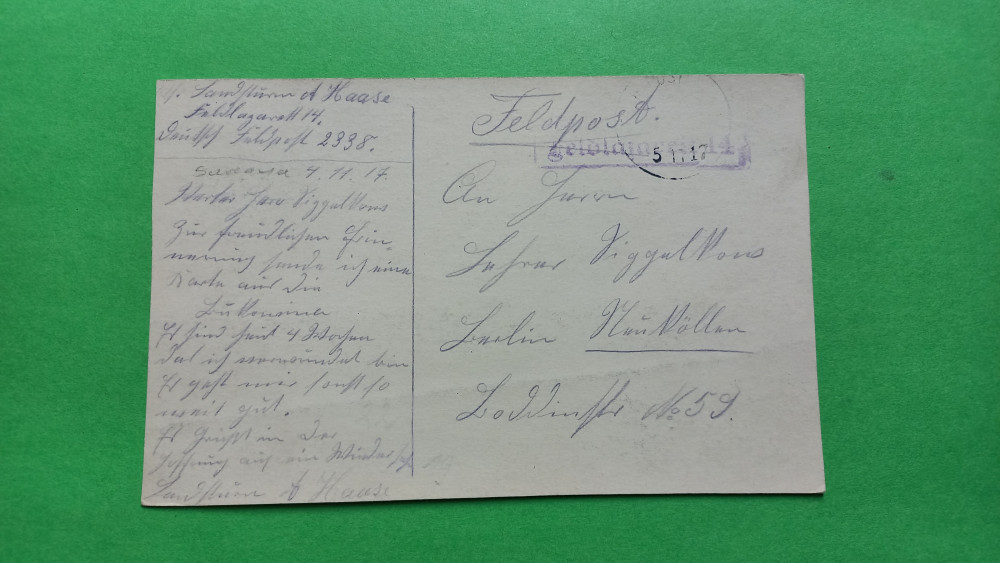 Landsturm A Haase
Feldlazarett 14.
Deutsch Feldpost 2338.
4.11.17
Werter Herr Siggelkow
Zur freundlichen Erin-
nerung sende ich eine
Karte aus die
Bukowina
Es sind heut 4 Wochen
das ich verwundet bin
Es geht mir sonst so
weit gut.
Es grüßt in der
Hoffnung auf ein Wiederseh
Landsturm A Haase
Feldpost.
5 11 17
An Herrn
Lehrer Siggelkow
Berlin Neukölln
Boddinstr No 59.